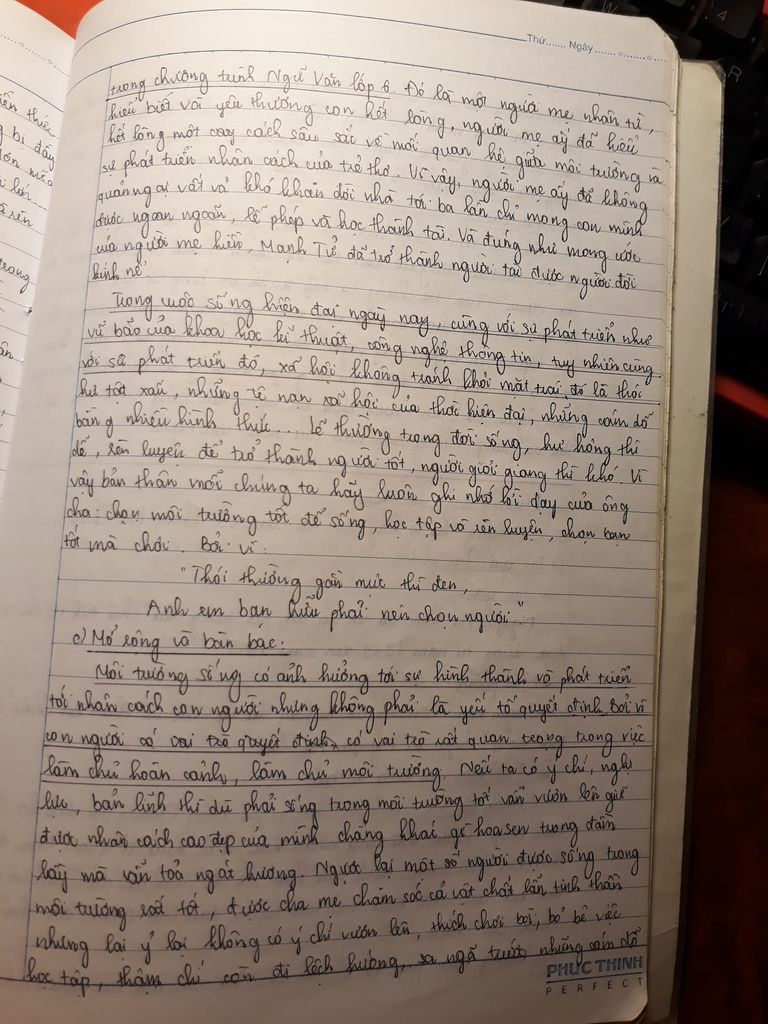 Thứ....... Ngày.......
trong chương trình Ngữ Văn lớp 6. Đó là một người mẹ nhân từ,
hiểu biết và yêu thương con hết lòng, người mẹ ấy đã hiểu
hết lòng một cách sâu sắc về mối quan hệ giữa môi trường và
sự phát triển nhân cách của trẻ thơ. Vì vậy, người mẹ ấy đã không
quản ngại vất vả khó khăn dời nhà tới ba lần chỉ mong con mình
được ngoan ngoãn, lễ phép và học thành tài. Và đúng như mong ước
của người mẹ hiền, Mạnh Tử đã trở thành người tài được người đời
kính nể.
Trong cuộc sống hiện đại ngày nay, cùng với sự phát triển như
vũ bão của khoa học kĩ thuật, công nghệ thông tin, tuy nhiên cùng
với sự phát triển đó, xã hội không tránh khỏi mặt trái, đó là thói
hư tật xấu, những tệ nạn xã hội của thời hiện đại, những cám dỗ
bằng nhiều hình thức... Lẽ thường trong đời sống, hư hỏng thì
dễ, rèn luyện để trở thành người tốt, người giỏi giang thì khó. Vì
vậy bản thân mỗi chúng ta hãy luôn ghi nhớ lời dạy của ông
cha: chọn môi trường tốt để sống, học tập và rèn luyện, chọn bạn
tốt mà chơi. Bởi vì:
"Thói thường gần mực thì đen,
Anh em bạn hữu phải nên chọn người."
c) Mở rộng và bàn bạc:
Môi trường sống có ảnh hưởng tới sự hình thành và phát triển
tới nhân cách con người nhưng không phải là yếu tố quyết định. Bởi vì
con người có vai trò quyết định, có vai trò rất quan trọng trong việc
làm chủ hoàn cảnh, làm chủ môi trường. Nếu ta có ý chí, nghị
lực, bản lĩnh thì dù phải sống trong môi trường tốt vẫn vươn lên giữ
được nhân cách cao đẹp của mình chẳng khác gì hoa sen trong đầm
lầy mà vẫn toả ngát hương. Ngược lại một số người được sống trong
môi trường rất tốt, được cha mẹ chăm sóc cả vật chất lẫn tinh thần
nhưng lại ỷ lại không có ý chí vươn lên, thích chơi bời, bỏ bê việc
học tập, thậm chí còn đi lệch hướng, sa ngã trước những cám dỗ
PHUC THINH
PERFECT